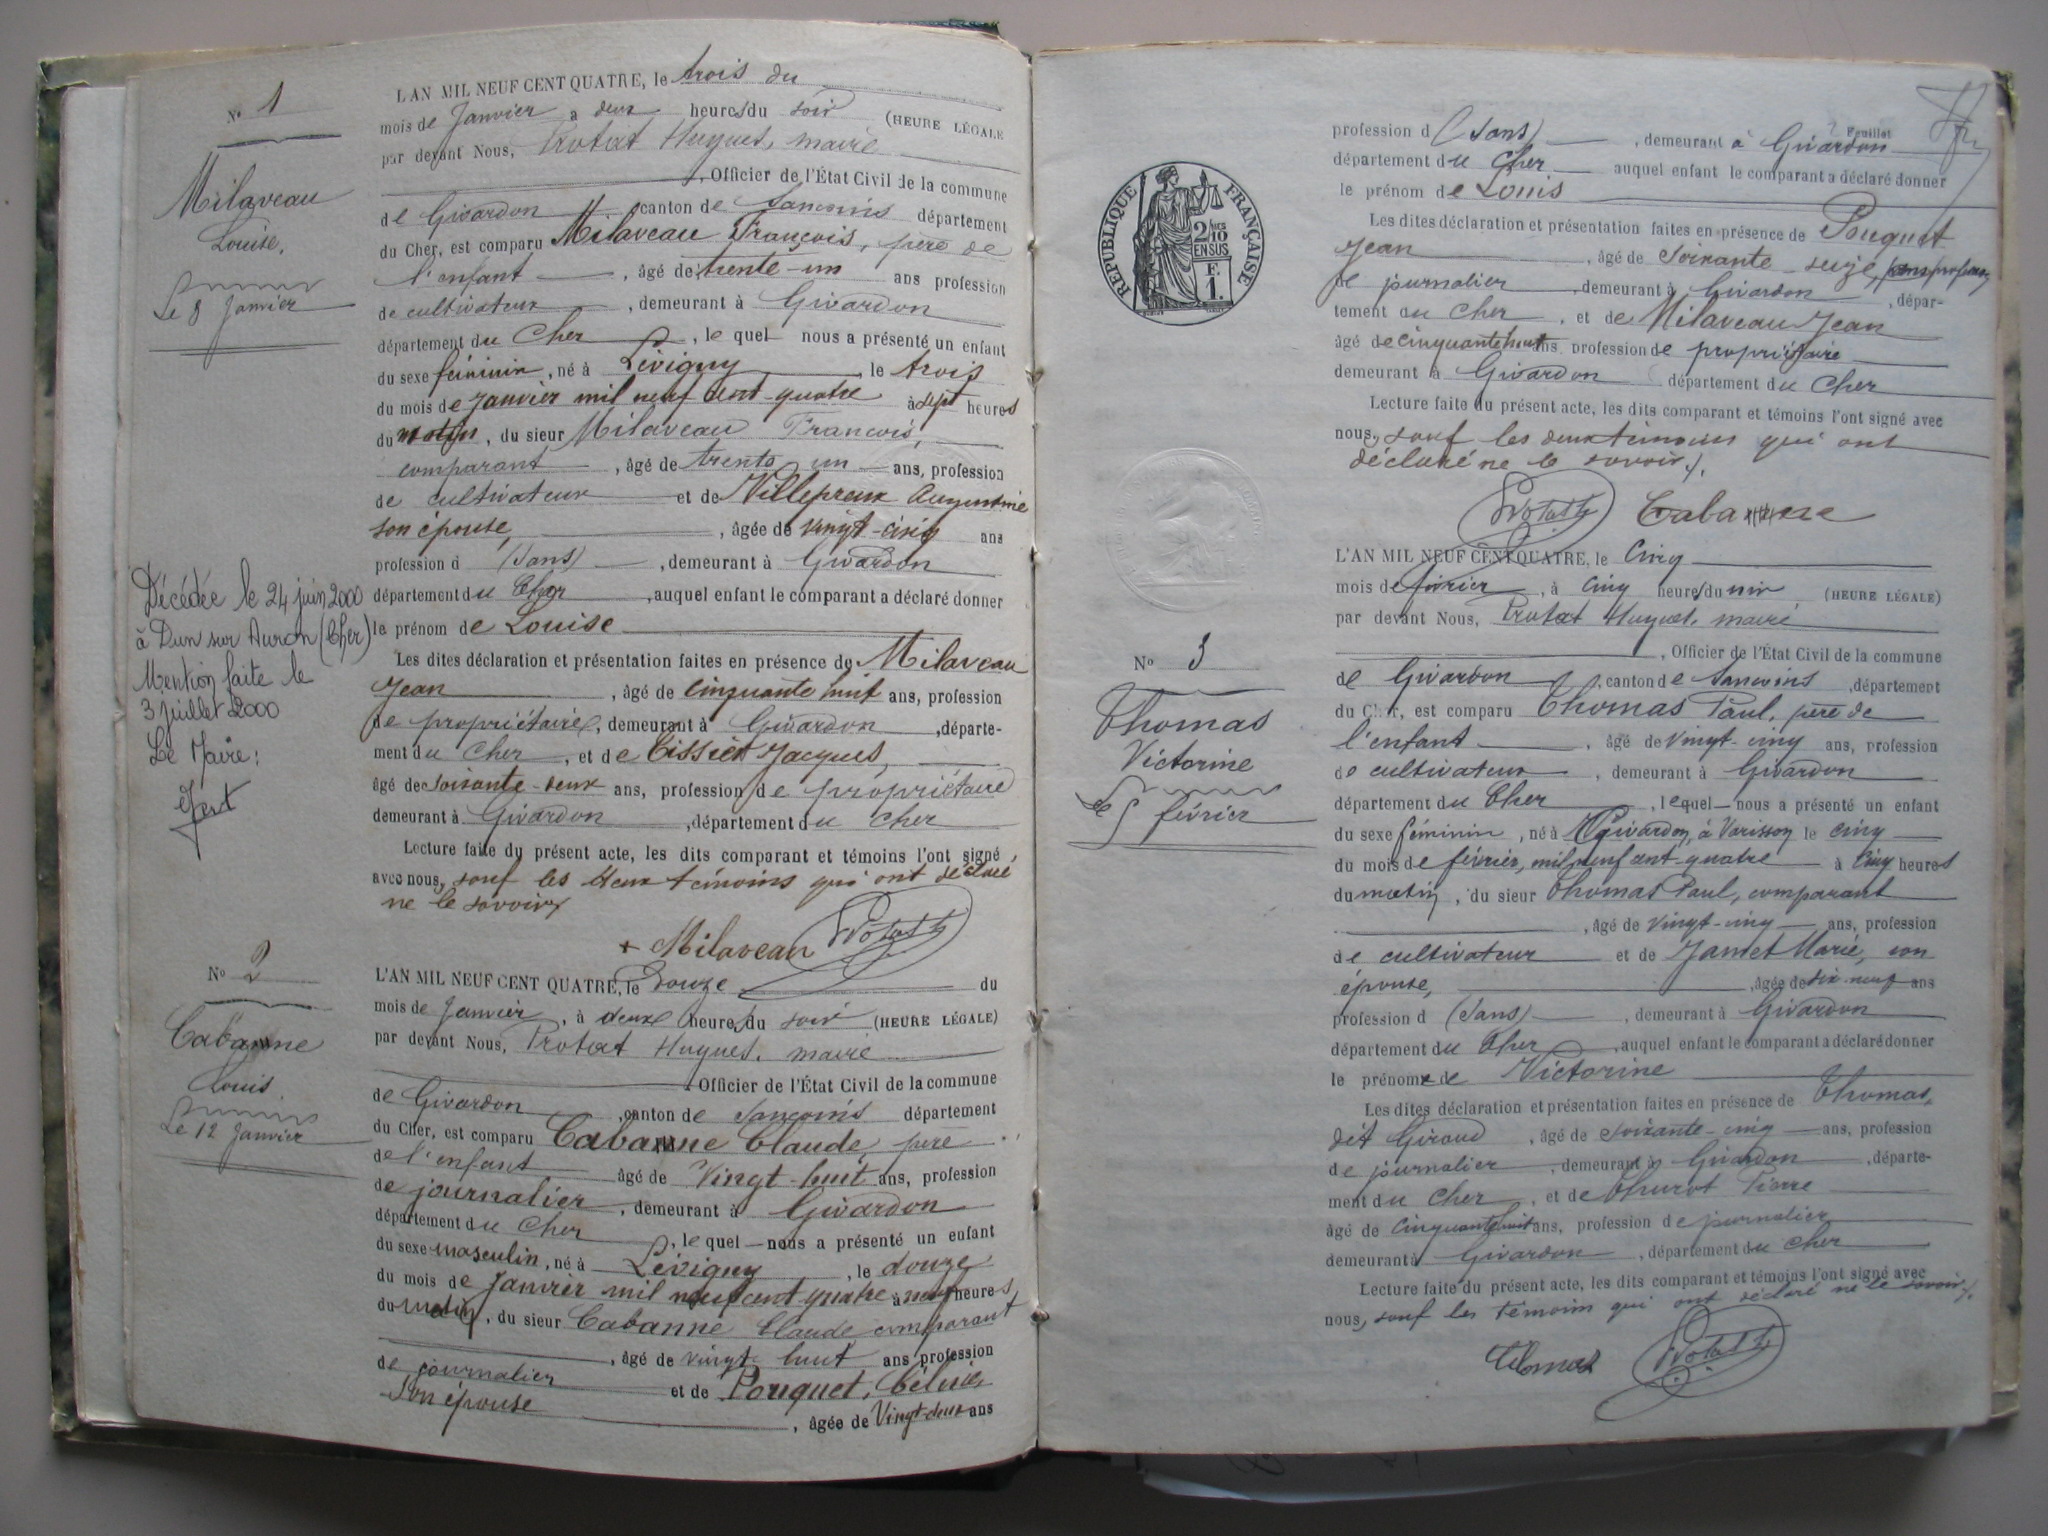 Nº 1
Milaveau
Louise,
Le 8 Janvier
Décédée le 24 juin 2000
à Dun sur Auron (Cher)
Mention faite le
3 juillet 2000
Le Maire:
L'AN MIL NEUF CENT QUATRE, le trois du
mois de Janvier a deux heures du soir (HEURE LÉGALE
par devant Nous, Protat Hugues, maire
, Officier de l'État Civil de la commune
de Givardon canton de Sancoins département
du Cher, est comparu Milaveau François, père de
l'enfant , âgé de trente-un ans profession
de cultivateur , demeurant à Givardon
département du Cher , le quel nous a présenté un enfant
du sexe féminin , né à Lévigny , le trois
du mois de Janvier mil neuf cent quatre à sept heures
du matin , du sieur Milaveau François,
comparant , âgé de trente un ans, profession
de cultivateur et de Villepreux Augustine
son épouse, , âgée de vingt-cinq ans
profession d (sans) , demeurant à Givardon
département du Cher , auquel enfant le comparant a déclaré donner
le prénom de Louise
Les dites déclaration et présentation faites en présence de Milaveau
Jean , âgé de cinquante huit ans, profession
de propriétaire, demeurant à Givardon , départe-
ment du Cher , et de Tissier Jacques,
âgé de soixante-deux ans, profession de propriétaire
demeurant à Givardon , département du Cher
Lecture faite du présent acte, les dits comparant et témoins l'ont signé
avec nous, sauf les deux témoins qui ont déclaré
ne le savoir
+ Milaveau Protat h
Nº 2
Cabanne
Louis
Le 12 Janvier
L'AN MIL NEUF CENT QUATRE, le Douze du
mois de Janvier , à deux heures du soir (HEURE LÉGALE)
par devant Nous, Protat Hugues, maire
Officier de l'État Civil de la commune
de Givardon , canton de Sancoins département
du Cher, est comparu Cabanne Claude, père
de l'enfant âgé de Vingt-huit ans, profession
de journalier , demeurant à Givardon
département du Cher , le quel nous a présenté un enfant
du sexe masculin , né à Lévigny , le douze
du mois de Janvier mil neuf cent quatre à neuf heures
du matin , du sieur Cabanne Claude comparant
, âgé de vingt huit ans profession
de journalier et de Pouquet, Célinie
son épouse , âgée de Vingt-deux ans
REPUBLIQUE FRANÇAISE
2/10
EN SUS
F.
1.
Feuillet
profession d (sans) , demeurant à Givardon
département du Cher auquel enfant le comparant a déclaré donner
le prénom de Louis
Les dites déclaration et présentation faites en présence de Pouquet
Jean , âgé de Soixante-seize, ans profession
de journalier , demeurant à Givardon , dépar-
tement du Cher , et de Milaveau Jean
âgé de cinquante huit ans profession de propriétaire
demeurant à Givardon département du Cher
Lecture faite du présent acte, les dits comparant et témoins l'ont signé avec
nous, sauf les deux témoins qui ont
déclaré ne le savoir /.
Protat h Cabanne
Nº 3
Thomas
Victorine
Le 5 février
L'AN MIL NEUF CENT QUATRE, le Cinq
mois de février , à cinq heures du soir (HEURE LÉGALE)
par devant Nous, Protat Hugues, maire
, Officier de l'État Civil de la commune
de Givardon , canton de Sancoins , département
du Cher, est comparu Thomas Paul, père de
l'enfant , âgé de vingt-cinq ans, profession
de cultivateur , demeurant à Givardon
département du Cher , lequel nous a présenté un enfant
du sexe féminin , né à Givardon, à Varisson le cinq
du mois de février, mil neuf cent quatre à cinq heures
du matin , du sieur Thomas Paul, comparant
, âgé de vingt-cinq ans, profession
de cultivateur et de Jamet Marie, son
épouse, , âgée de dix-neuf ans
profession d (sans) , demeurant à Givardon
département du Cher , auquel enfant le comparant a déclaré donner
le prénom de Victorine
Les dites déclaration et présentation faites en présence de Thomas,
dit Giraud , âgé de soixante-cinq ans, profession
de journalier , demeurant à Givardon , départe-
ment du Cher , et de Thurot Pierre
âgé de cinquante huit ans, profession de journalier
demeurant à Givardon , département du Cher
Lecture faite du présent acte, les dits comparant et témoins l'ont signé avec
nous, sauf les témoins qui ont déclaré ne le savoir /.
Thomas Protat h